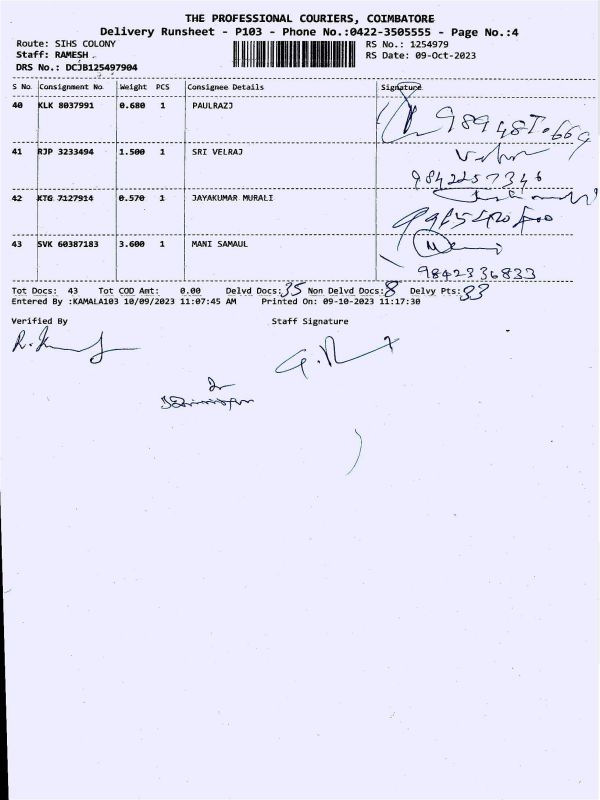 THE PROFESSIONAL COURIERS, COIMBATORE
Delivery Runsheet - P103 - Phone No.:0422-3505555 - Page No.:4
Route: SIHS COLONY RS No.: 1254979
Staff: RAMESH . RS Date: 09-Oct-2023
DRS No.: DCJB125497904
S No Consignment No Weight PCS Consignee Details Signature
40 KLK 8037991 0.680 1 PAULRAZJ
41 RJP 3233494 1.500 1 SRI VELRAJ
9842257346
42 KTG 7127914 0.570 1 JAYAKUMAR MURALI
43 SVK 60387183 3.600 1 MANI SAMAUL
9842336833
Tot Docs: 43 Tot COD Amt: 0.00 Delvd Docs:35 Non Delvd Docs:8 Delvy Pts:33
Entered By :KAMALA103 10/09/2023 11:07:45 AM Printed On: 09-10-2023 11:17:30
Verified By Staff Signature